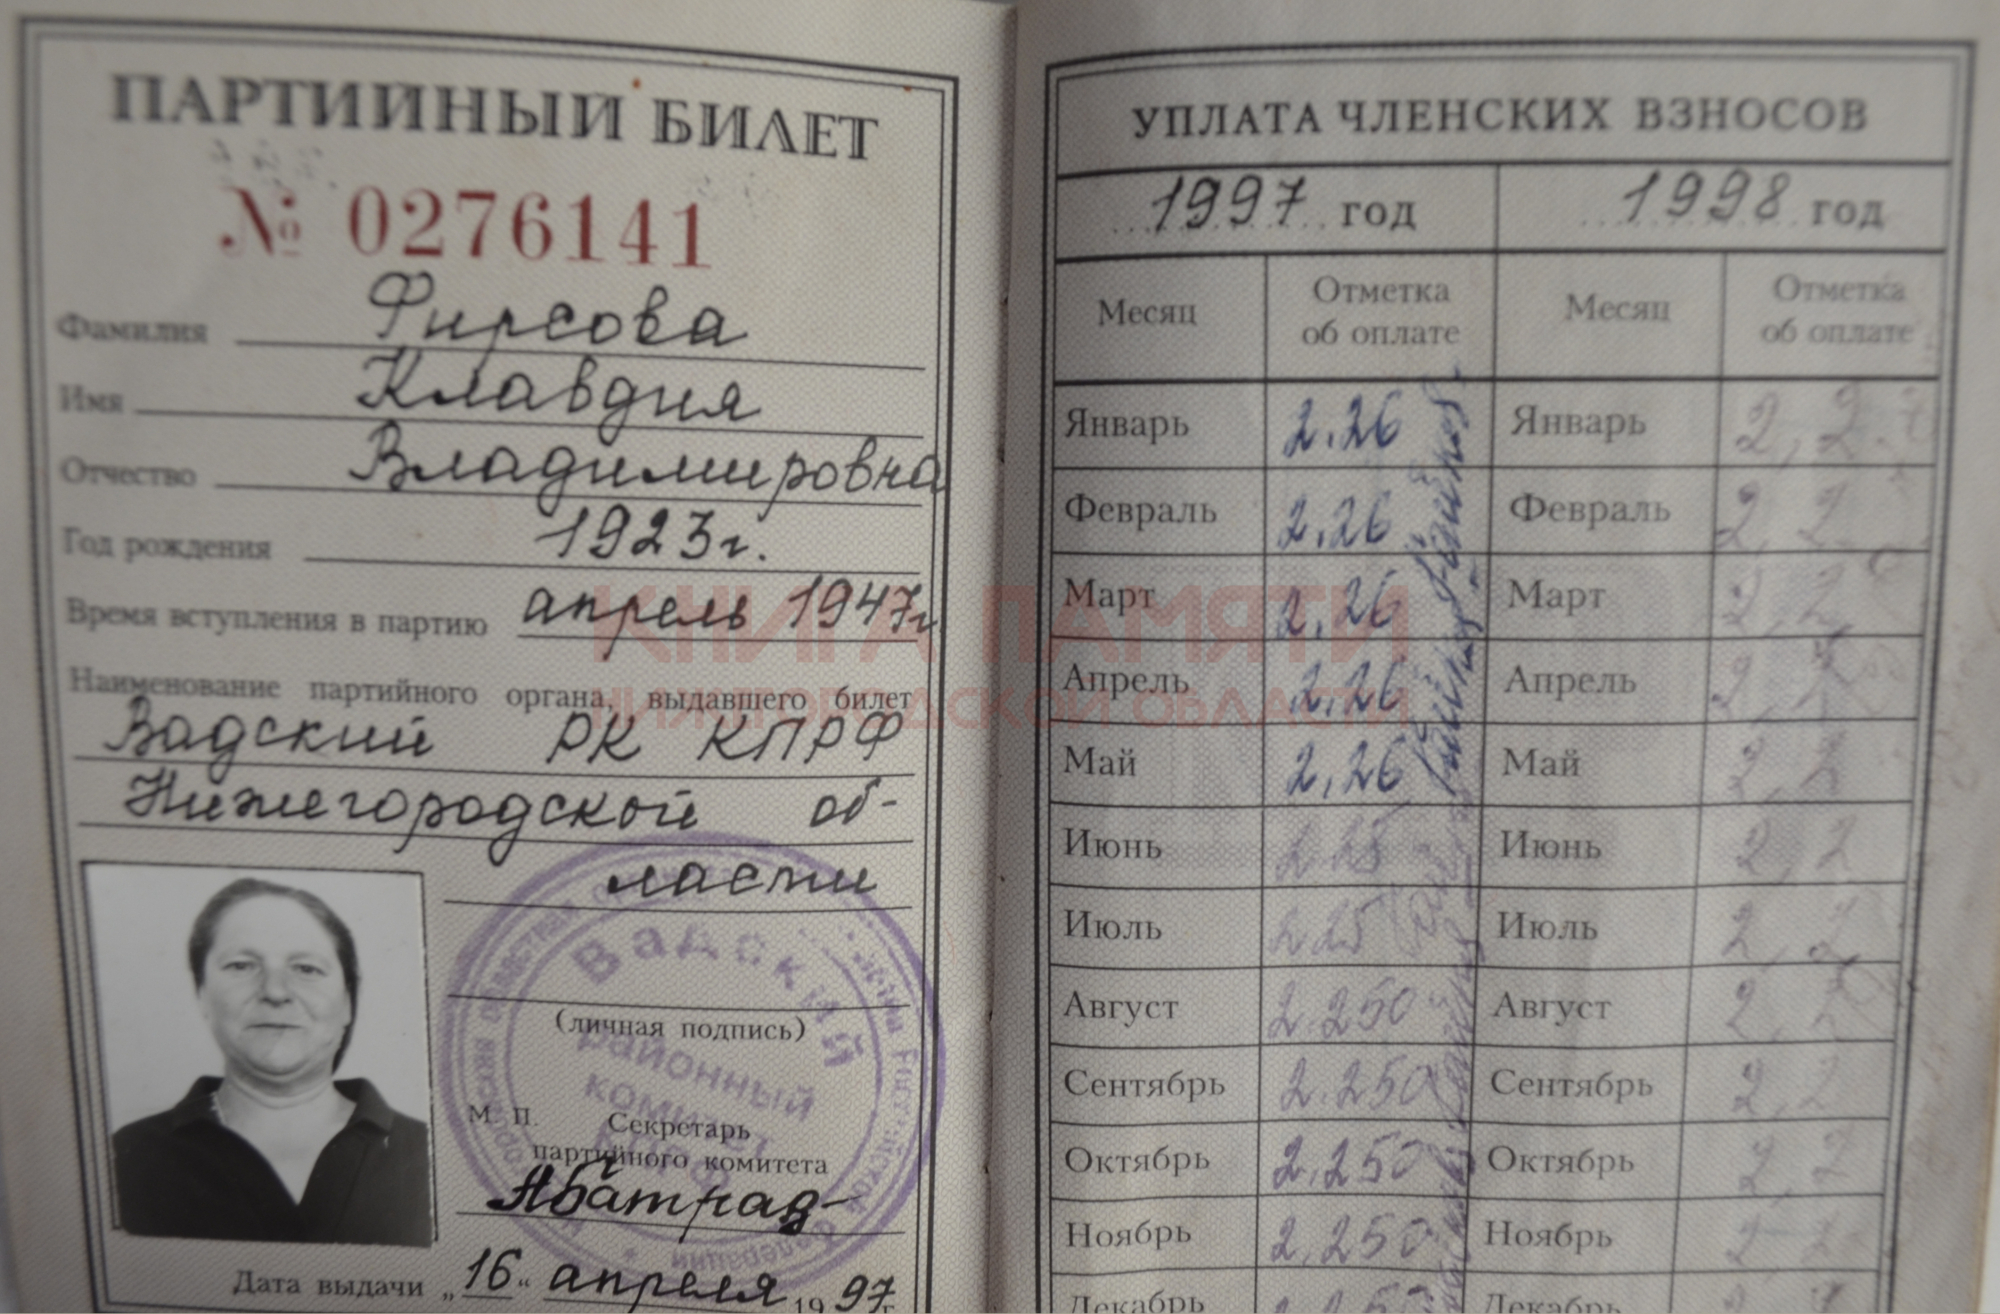 ПАРТИЙНЫЙ БИЛЕТ
№ 0276141
Фамилия Фирсова
Имя Клавдия
Отчество Владимировна
Год рождения 1923г.
Время вступления в партию апрель 1947г.
Наименование партийного органа, выдавшего билет
Вадский РК КПРФ
Нижегородской об-
ласти
(личная подпись)
М. П. Секретарь
партийного комитета
Дата выдачи „16“ апреля 1997 г.
Вадский
районный
комитет
УПЛАТА ЧЛЕНСКИХ ВЗНОСОВ
1997 год 1998 год
Месяц Отметка об оплате Месяц Отметка об оплате
Январь 2.26 Январь 2,2
Февраль 2.26 Февраль 2,2
Март 2.26 Март 2,2
Апрель 2.26 Апрель 2,2
Май 2.26 Май 2,2
Июнь 2.25 Июнь 2,2
Июль 2.25 Июль 2,2
Август 2.250 Август 2,2
Сентябрь 2.250 Сентябрь 2,2
Октябрь 2.250 Октябрь 2,2
Ноябрь 2.250 Ноябрь 2,2
Декабрь Декабрь
КНИГА ПАМЯТИ
НИЖЕГОРОДСКОЙ ОБЛАСТИ